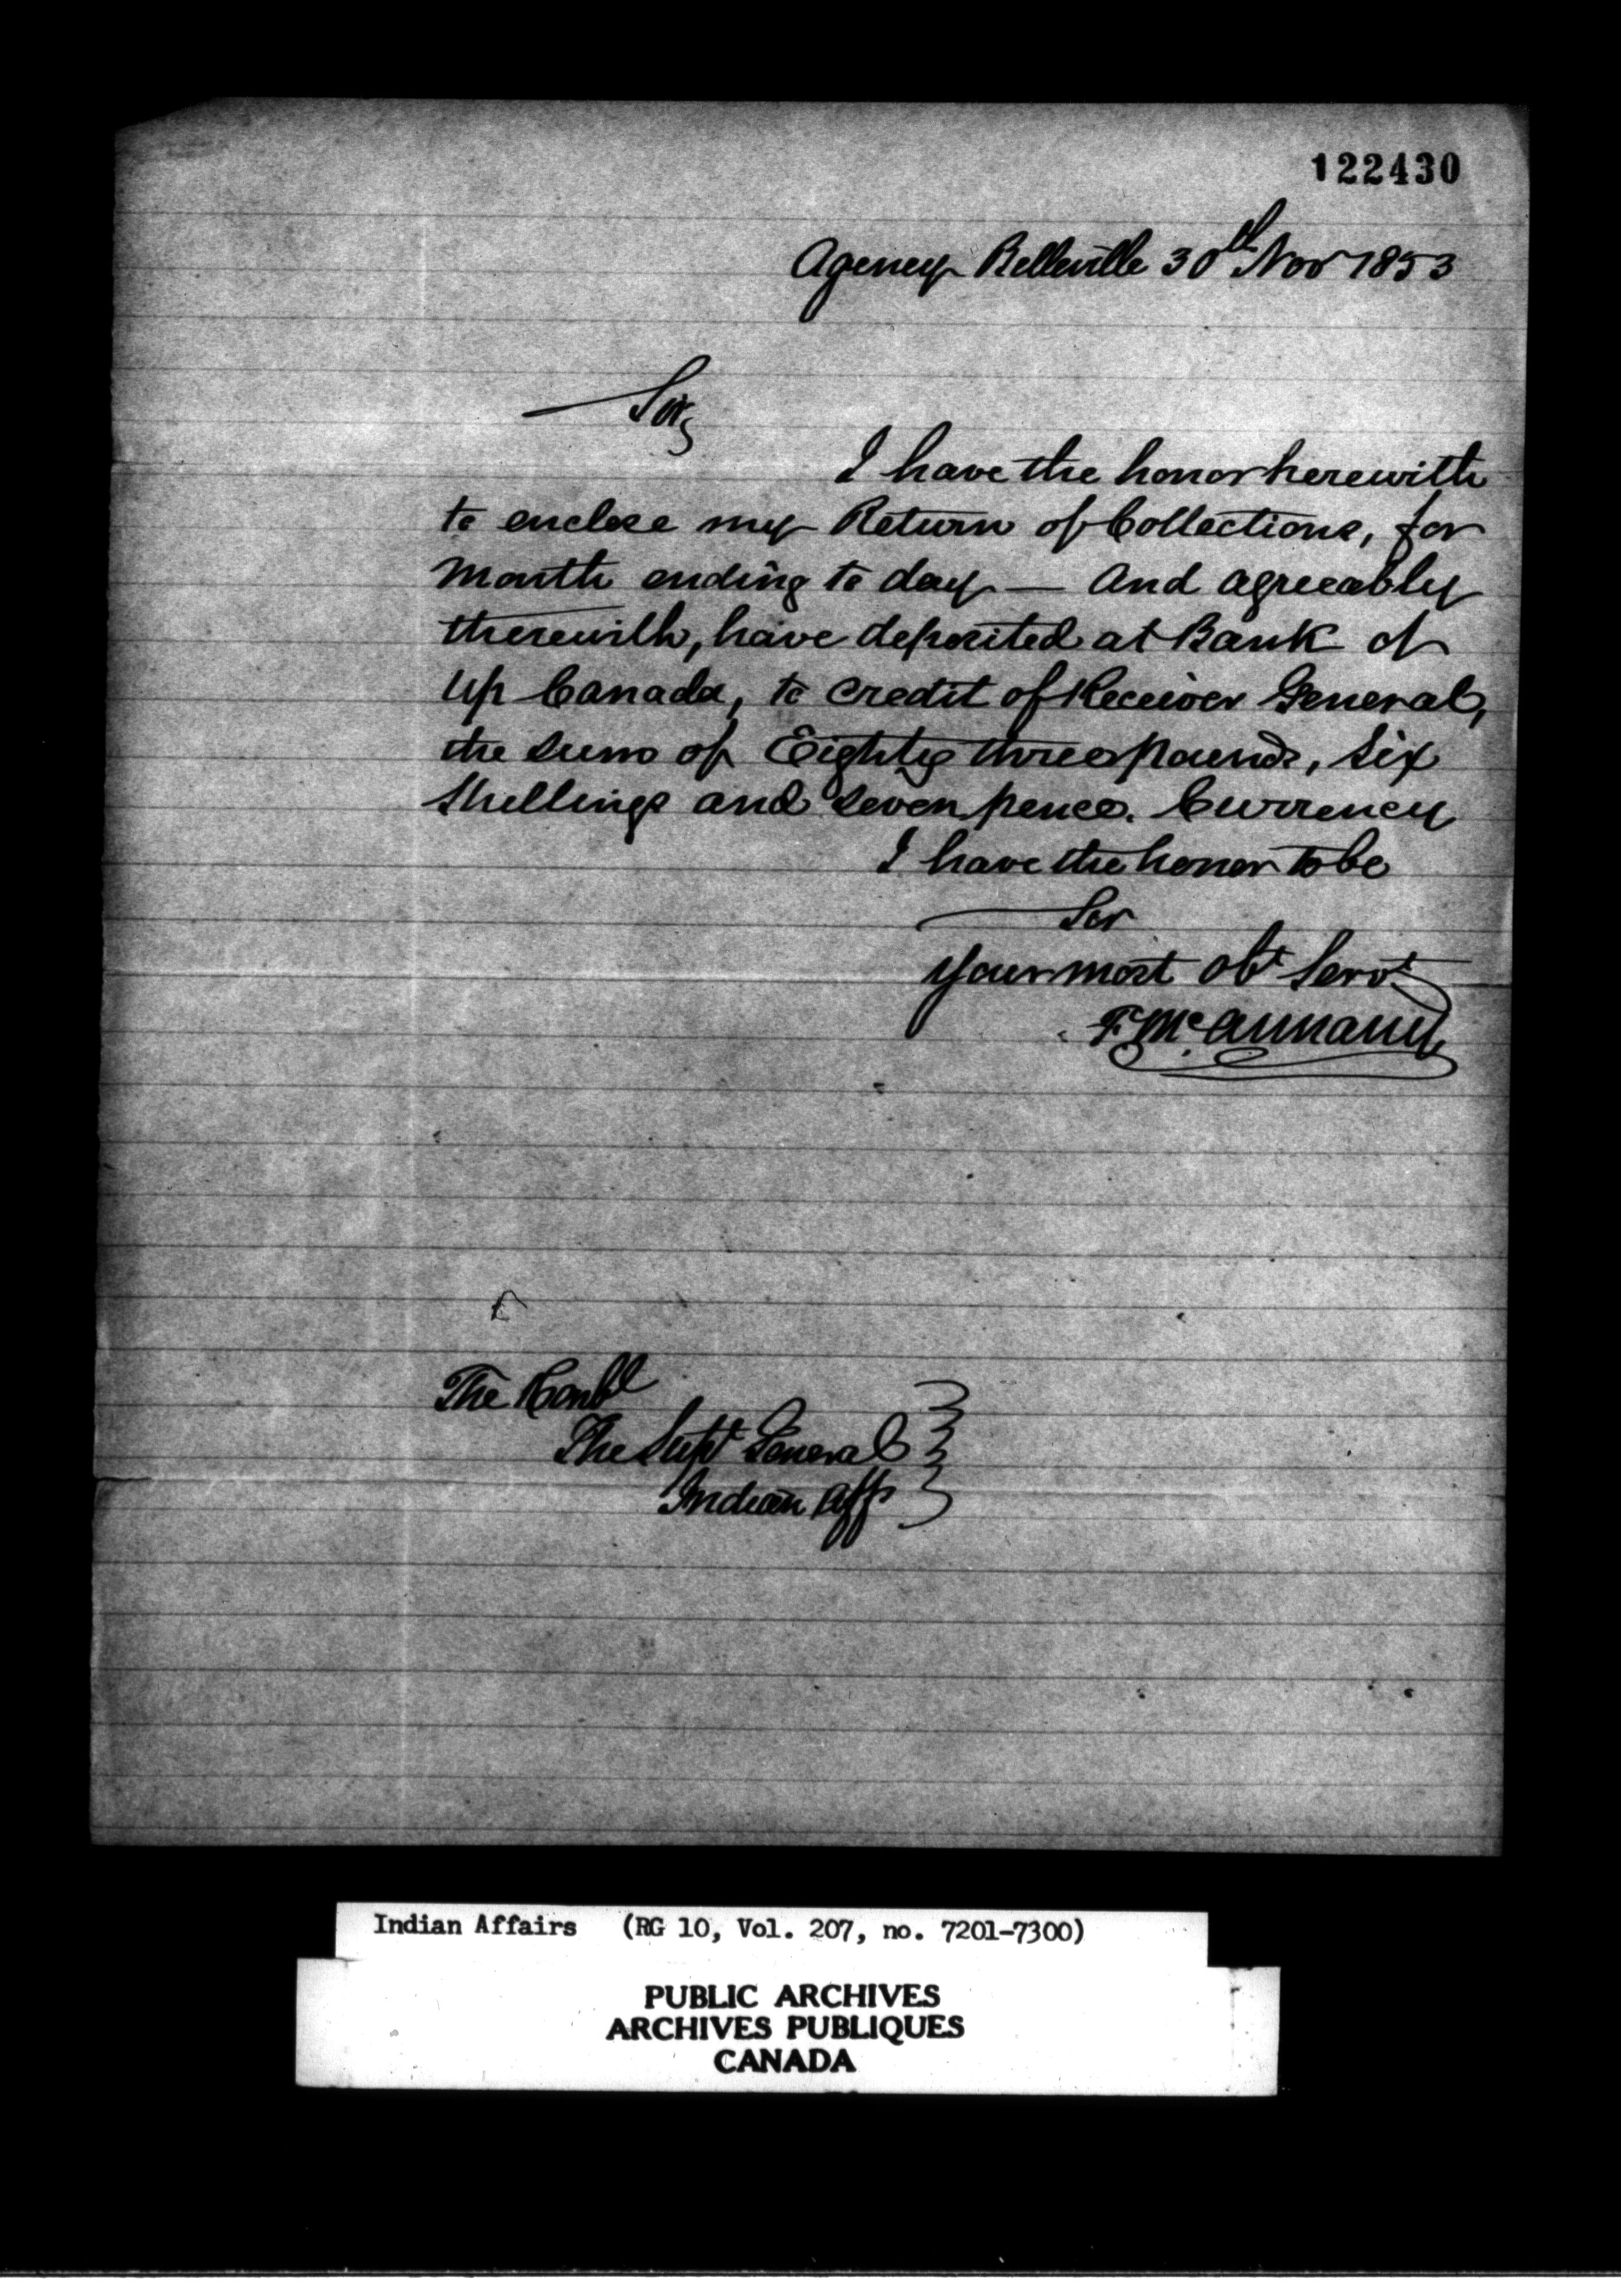 122430
Agency Belleville 30th Nov 1853
Sir,
I have the honor herewith
to enclose my Return of Collections, for
Month ending to day — And agreeably
therewith, have deposited at Bank of
Up Canada, to credit of Receiver General,
the sum of Eighty three pounds, six
Shillings and seven pence. Currency
I have the honor to be
Sir
Your most Obt Servt
F. McAnnany
The Honbl
The Supt General
Indian Aff
Indian Affairs (RG 10, Vol. 207, no. 7201-7300)
PUBLIC ARCHIVES
ARCHIVES PUBLIQUES
CANADA